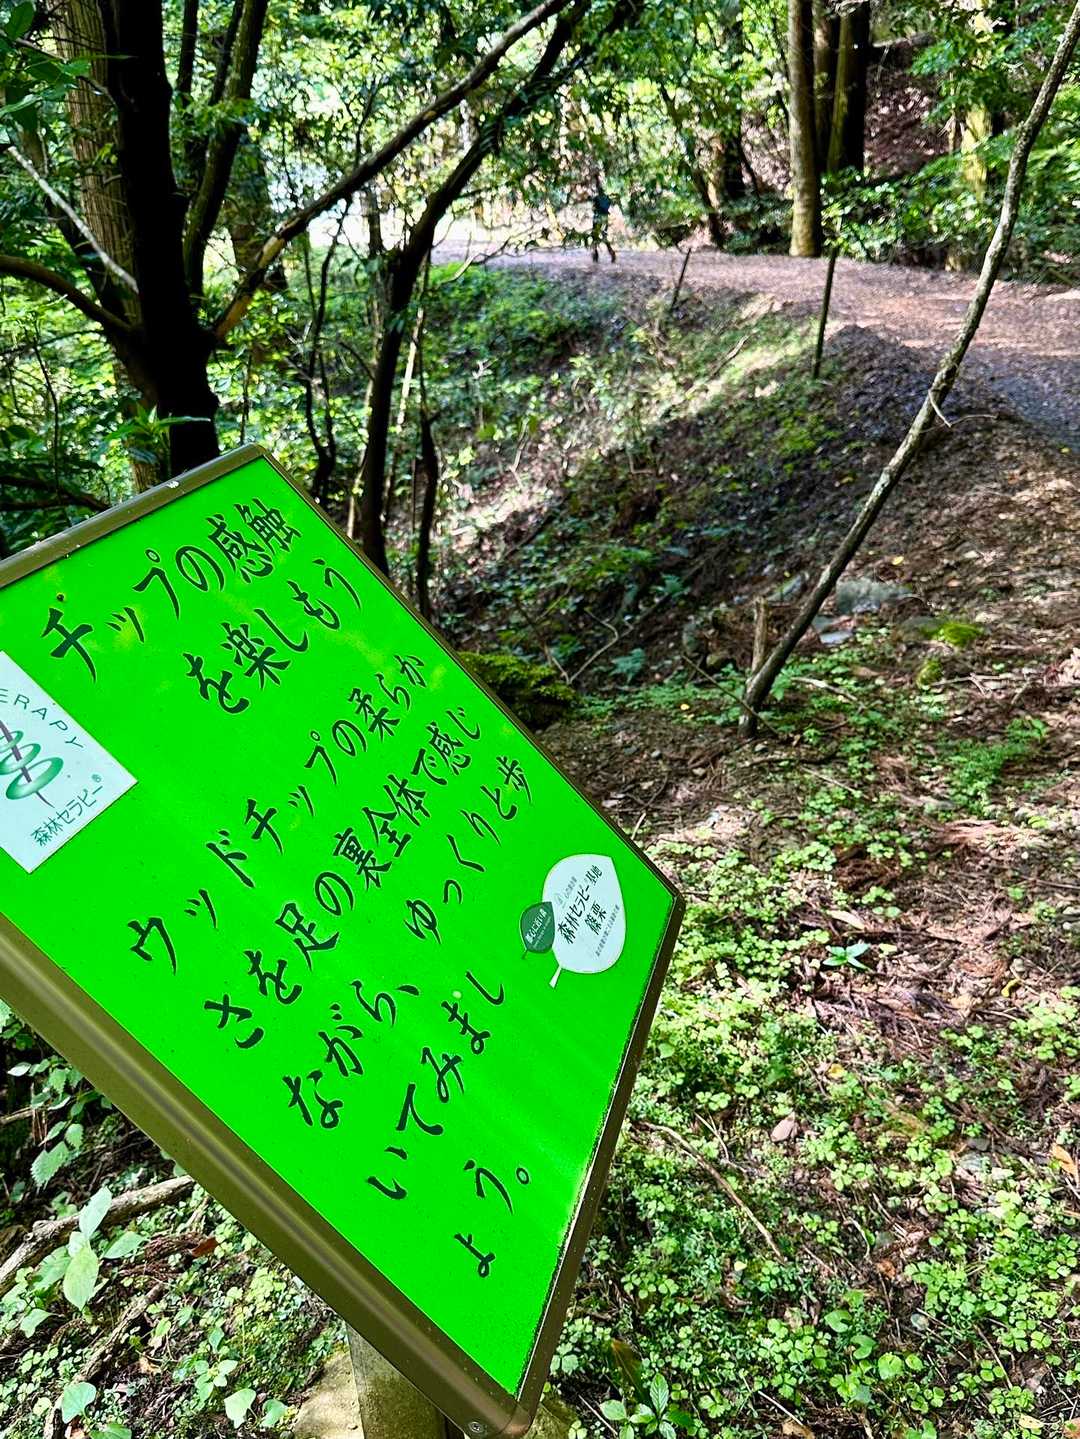 チップの感触
を楽しもう
ウッドチップの柔らか
さを足の裏全体で感じ
ながら、ゆっくりと歩
いてみまし
ょう。
ERAPY
森林セラピー®
森林セラピー®基地
篠栗